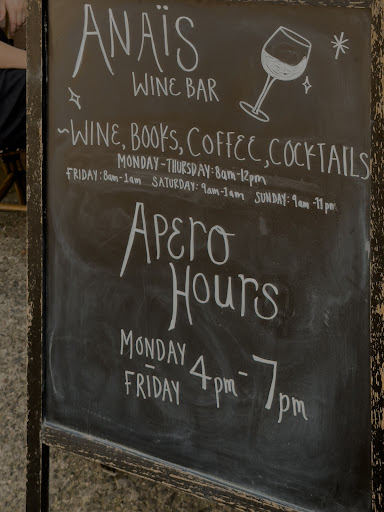 ANAÏS
WINE BAR
~WINE, BOOKS, COFFEE, COCKTAILS
MONDAY-THURSDAY: 8am-12pm
FRIDAY: 8am-1am SATURDAY: 9am-1am SUNDAY: 9am-11pm
APERO
HOURS
MONDAY
-
FRIDAY
4pm-7pm